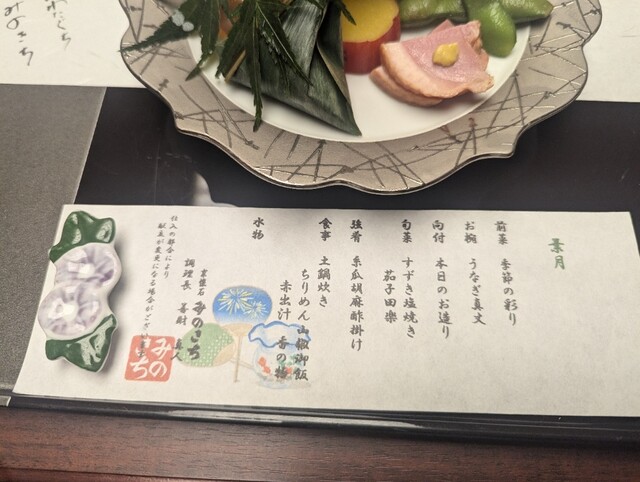 葉月
前菜 季節の彩り
お椀 うなぎ真丈
向付 本日のお造り
旬菜 すずき塩焼き
茄子田楽
強肴 糸瓜胡麻酢掛け
食事 土鍋炊き
ちりめん山椒御飯
赤出汁 香の物
水物
京懐石 みのきち
調理長
仕入の都合により
献立が変更になる場合がございます
みのきち
みのきち